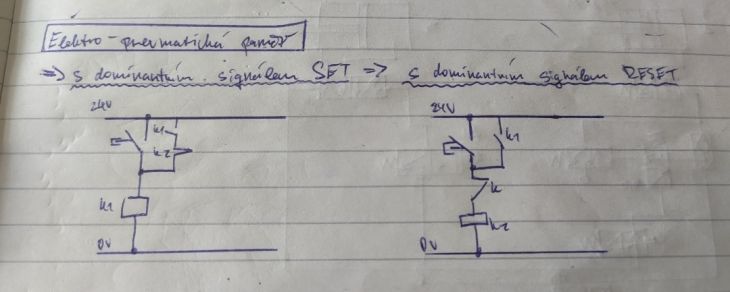 Elektro-pneumatická paměť
=> s dominantním signálem SET => s dominantním signálem RESET
24V
24V
k1
k2
k1
k
k1
k2
0V
0V